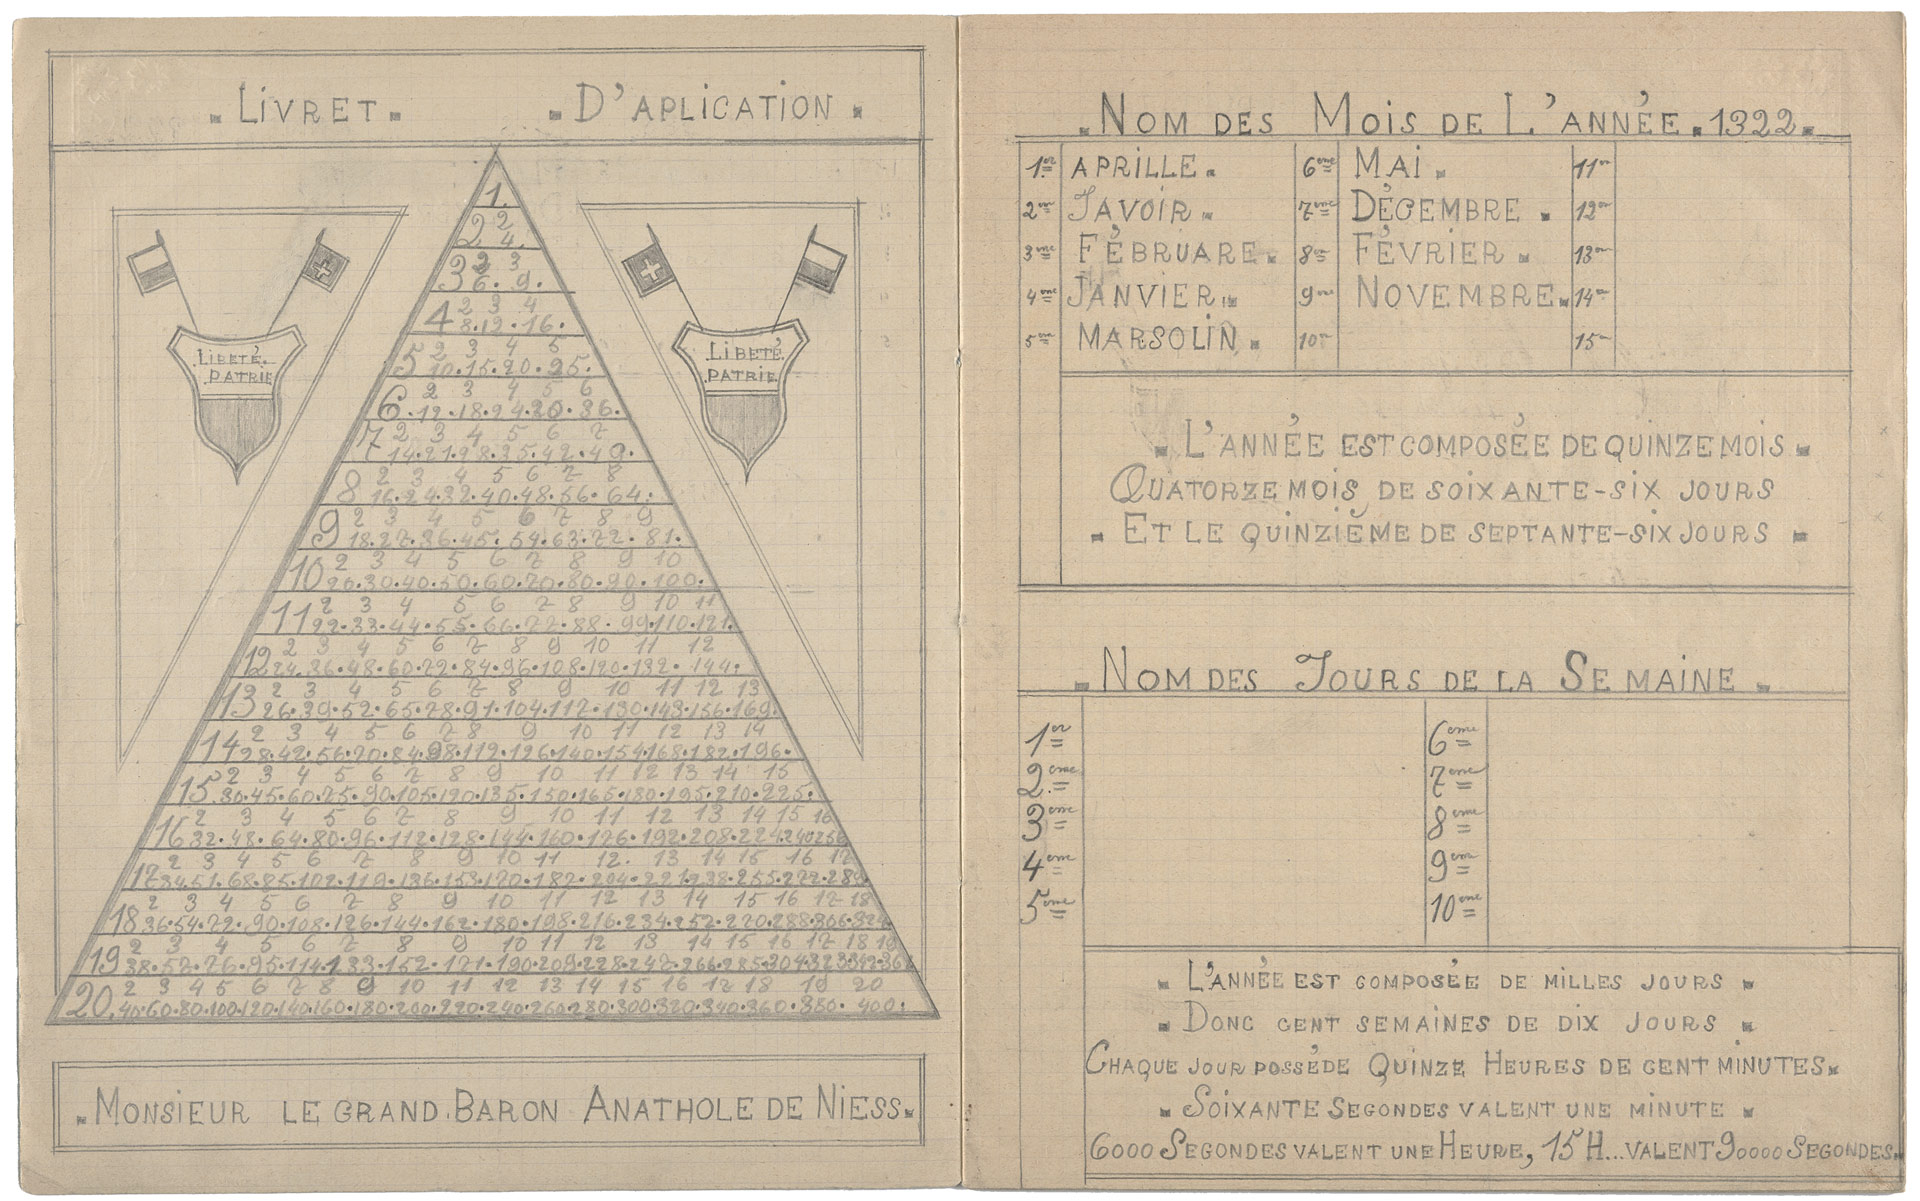 .LIVRET. .D'APLICATION.
1.
2 2
4.
3 2 3
6. 9.
4 2 3 4
8.12.16.
5 2 3 4 5
10.15.20.25.
6 2 3 4 5 6
.12.18.24.30.36.
7 2 3 4 5 6 7
14.21.28.35.42.49.
8 2 3 4 5 6 7 8
16.24.32.40.48.56.64.
9 2 3 4 5 6 7 8 9
18.27.36.45.54.63.72.81.
10 2 3 4 5 6 7 8 9 10
20.30.40.50.60.70.80.90.100.
11 2 3 4 5 6 7 8 9 10 11
22.33.44.55.66.77.88.99.110.121.
12 2 3 4 5 6 7 8 9 10 11 12
24.36.48.60.72.84.96.108.120.132.144.
13 2 3 4 5 6 7 8 9 10 11 12 13
26.39.52.65.78.91.104.112.130.143.156.169.
14 2 3 4 5 6 7 8 9 10 11 12 13 14
28.42.56.70.84.98.112.126.140.154.168.182.196.
15 2 3 4 5 6 7 8 9 10 11 12 13 14 15
30.45.60.75.90.105.120.135.150.165.180.195.210.225.
16 2 3 4 5 6 7 8 9 10 11 12 13 14 15 16
32.48.64.80.96.112.128.144.160.176.192.208.224.240.256
17 2 3 4 5 6 7 8 9 10 11 12. 13 14 15 16 17
34.51.68.85.102.119.136.153.170.182.204.221.238.255.272.289
18 2 3 4 5 6 7 8 9 10 11 12 13 14 15 16 17 18
36.54.72.90.108.126.144.162.180.198.216.234.252.270.288.306.324
19 2 3 4 5 6 7 8 9 10 11 12 13 14 15 16 17 18 19
38.57.76.95.114.133.152.171.190.209.228.247.266.285.304.323.342.361
20. 2 3 4 5 6 7 8 9 10 11 12 13 14 15 16 17 18 19 20
40.60.80.100.120.140.160.180.200.220.240.260.280.300.320.340.360.380.400.
LIBETÉ.
PATRIE
LIBETÉ
PATRIE
.MONSIEUR LE GRAND.BARON ANATHOLE DE NIESS.
.NOM DES MOIS DE L'ANNÉE.1322.
1er APRILLE. 6eme MAI. 11me
2me JAVOIR. 7eme DÉCEMBRE. 12me
3eme FÉBRUARE. 8me FÉVRIER. 13me
4eme JANVIER. 9me NOVEMBRE. 14me
5me MARSOLIN. 10me 15me
.L'ANNÉE EST COMPOSÉE DE QUINZE MOIS.
QUATORZE MOIS DE SOIXANTE-SIX JOURS
.ET LE QUINZIÈME DE SEPTANTE-SIX JOURS.
.NOM DES JOURS DE LA SEMAINE.
1er 6eme
2eme 7eme
3eme 8eme
4eme 9eme
5eme 10eme
.L'ANNÉE EST COMPOSÉE DE MILLES JOURS.
.DONC CENT SEMAINES DE DIX JOURS.
CHAQUE JOUR POSSÉDE QUINZE HEURES DE CENT MINUTES.
.SOIXANTE SEGONDES VALENT UNE MINUTE.
6000 SEGONDES VALENT UNE HEURE, 15 H...VALENT 90000 SEGONDES.